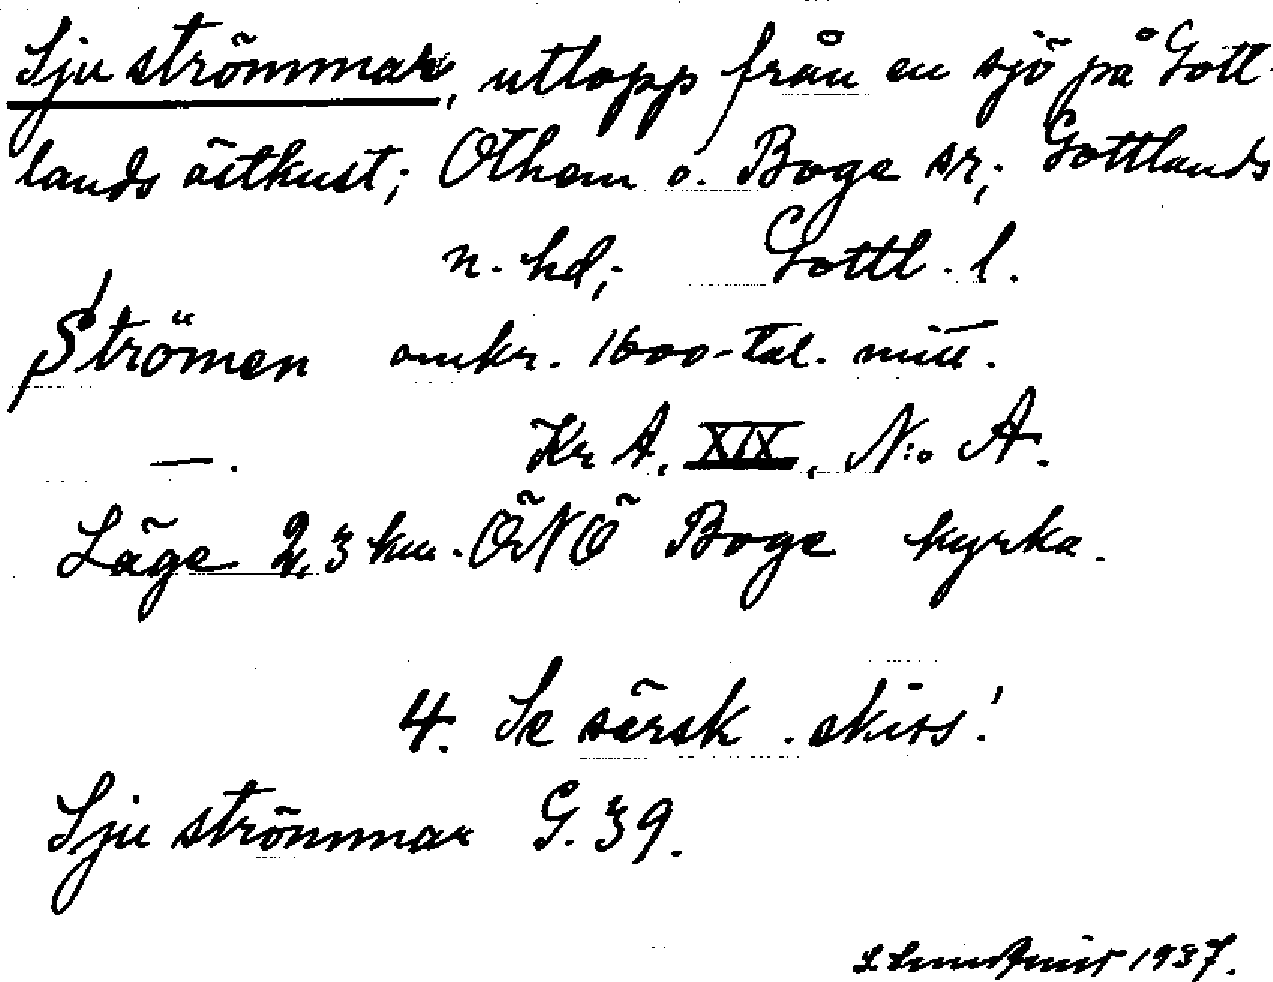 Sju strömmar, utlopp från en sjö på Gott-
lands östkust; Othem o. Boge sr; Gottlands
n. hd; Gottl. l.
Strömen omkr. 1600-tal. mitt.
—. Kr A. XIX, N:o A.
Läge 2,3 km. ÖNÖ Boge kyrka.
4. Se särsk. skiss!
Sju strömmar G. 39.
1937.